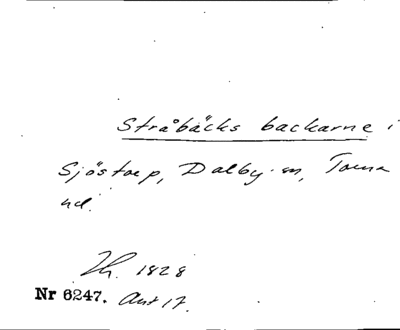 Stråbäcks backarne i
Sjöstorp, Dalby sn, Torna
hd.
Th. 1828
Nr 6247. Ant 17.